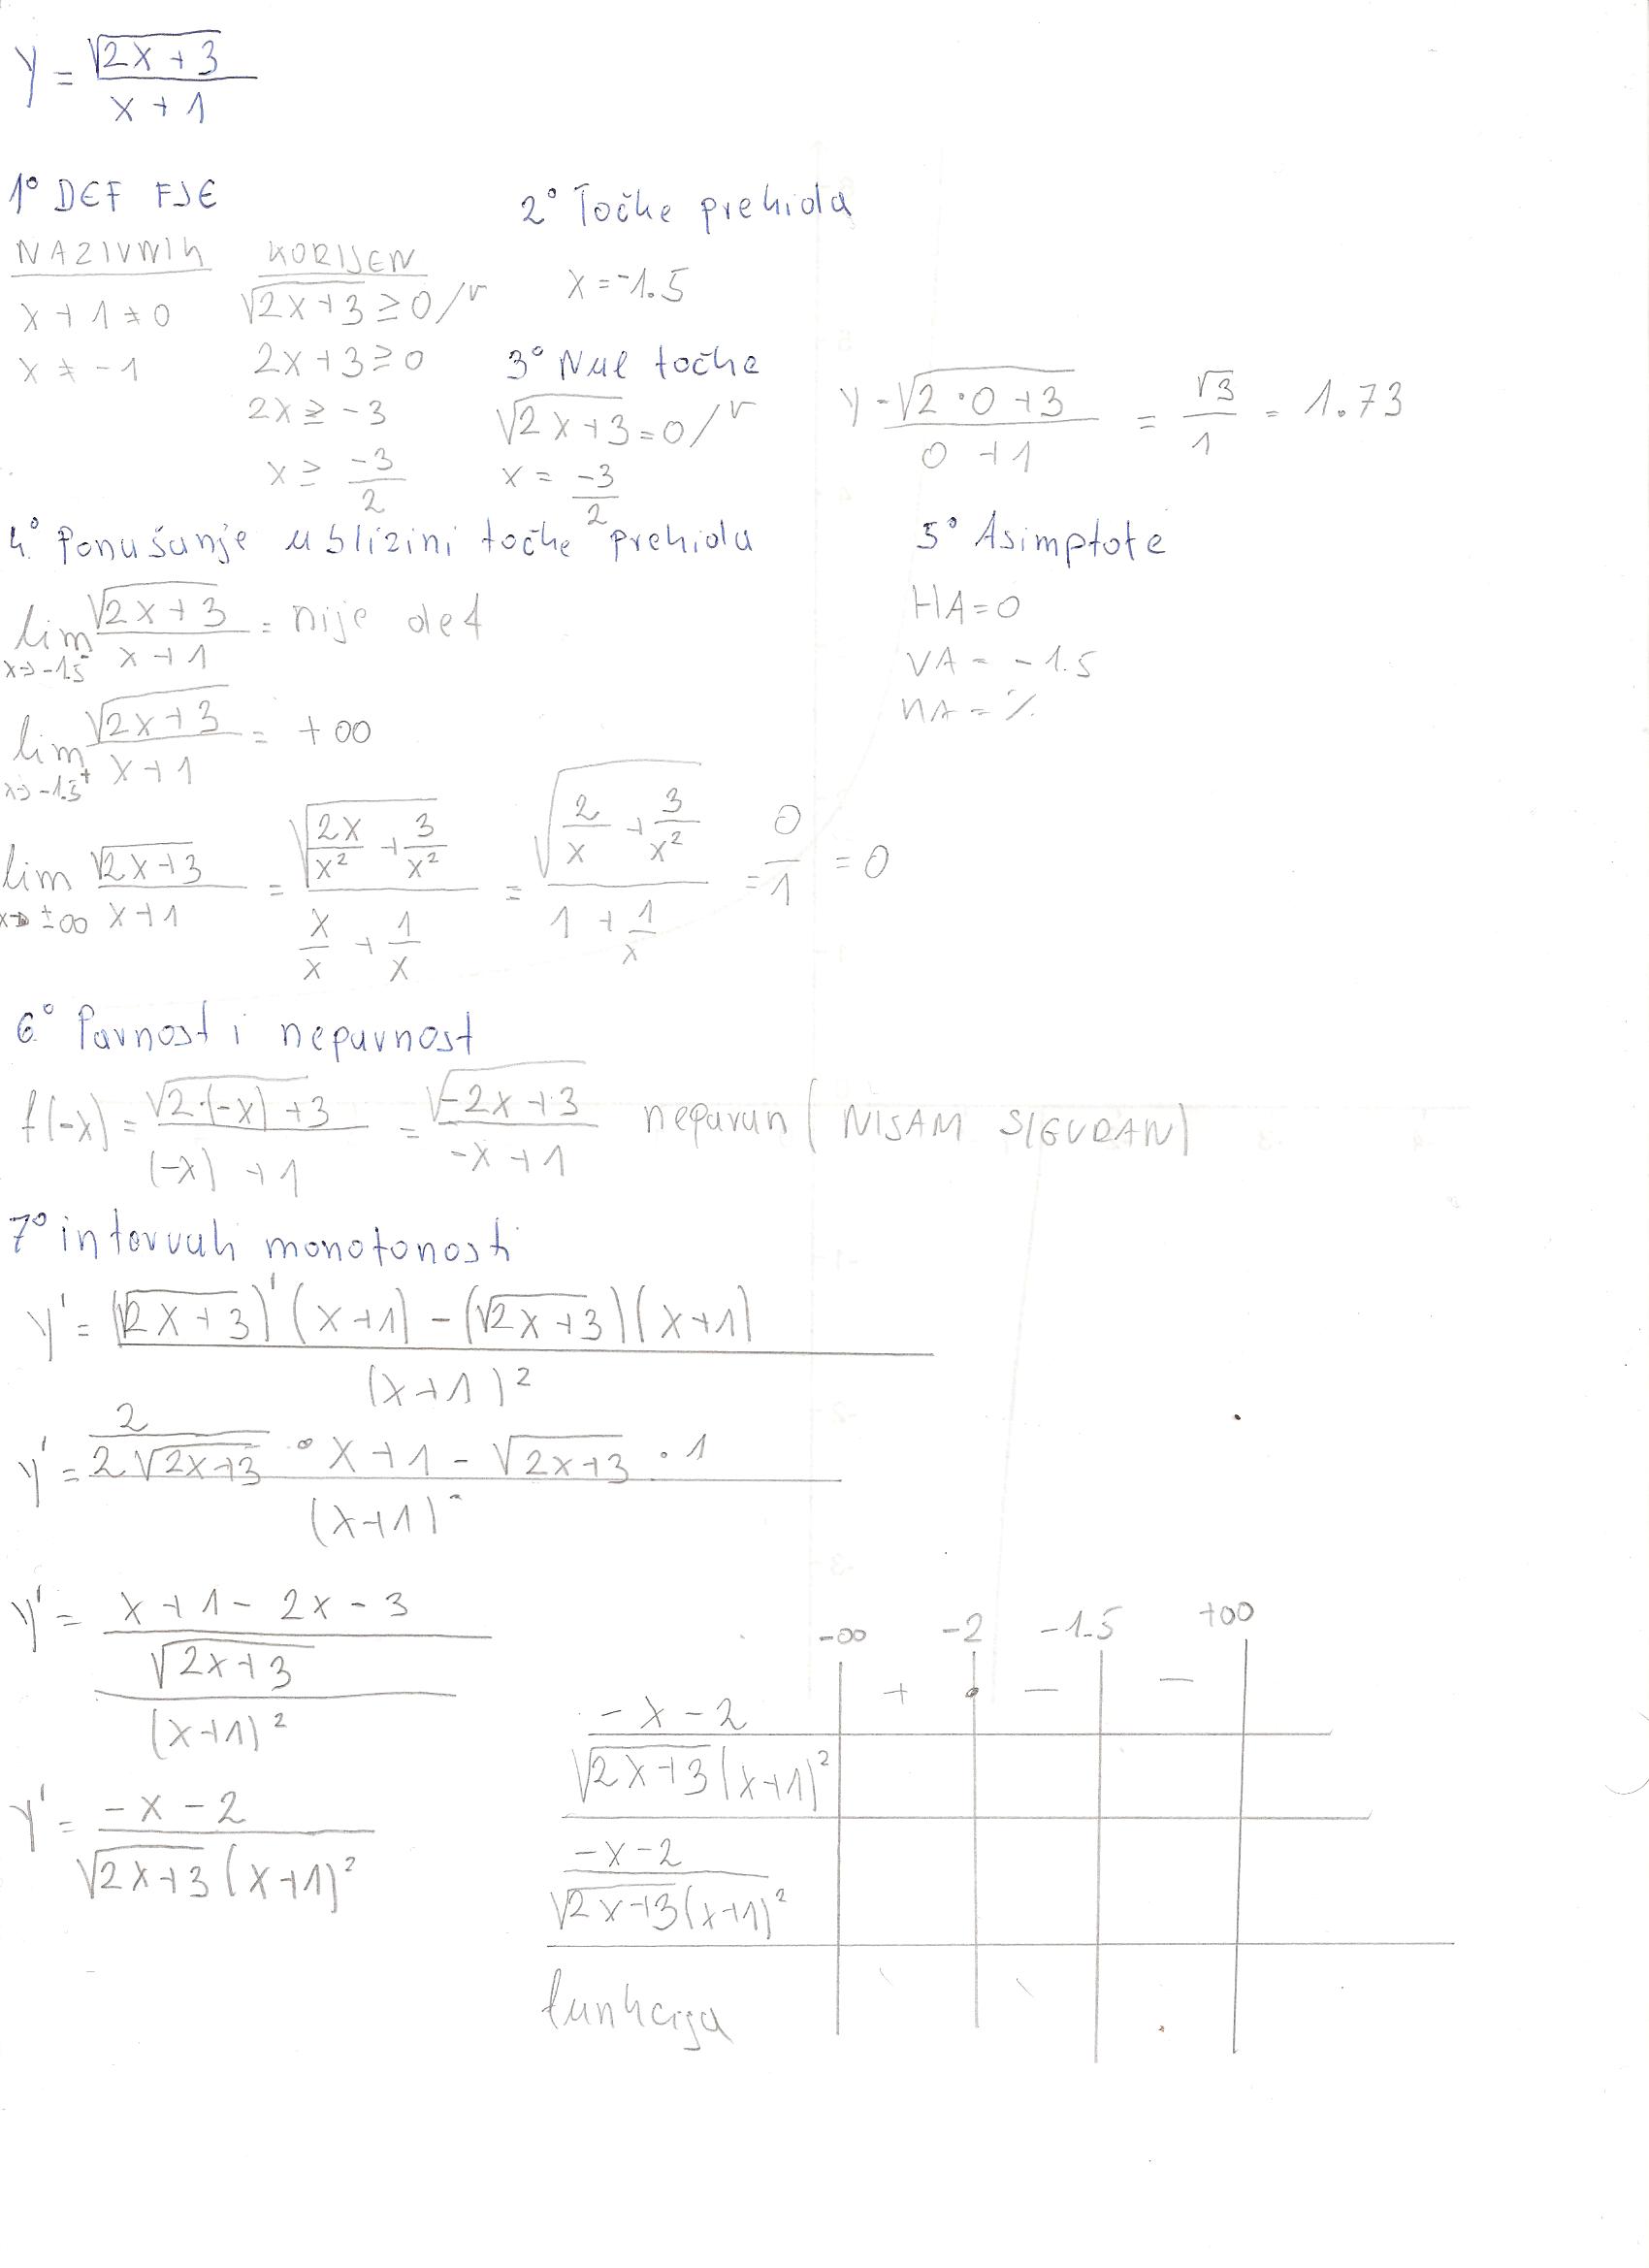 y = √(2x+3) / (x+1)
1° DEF FJE
NAZIVNIK
x+1≠0
x≠-1
KORIJEN
√(2x+3) ≥ 0 /²
2x+3≥0
2x≥-3
x≥ -3/2
2° Točke prekida
x=-1.5
3° Nul točke
√(2x+3) = 0 /²
x = -3/2
y = √(2·0+3) / (0+1) = √3/1 = 1.73
4° Ponašanje u blizini točke prekida
lim x→-1.5⁻ √(2x+3) / (x+1) = nije def
lim x→-1.5⁺ √(2x+3) / (x+1) = +∞
lim x→±∞ √(2x+3) / (x+1) = √(2x/x² + 3/x²) / (x/x + 1/x) = √(2/x + 3/x²) / (1 + 1/x) = 0/1 = 0
5° Asimptote
HA=0
VA = -1.5
KA = %
6° Parnost i neparnost
f(-x) = √(2·(-x)+3) / ((-x)+1) = √(-2x+3) / (-x+1) neparan (NISAM SIGURAN)
7° intervali monotonosti
y' = ((√(2x+3))' (x+1) - (√(2x+3))(x+1)) / (x+1)²
y' = (2/(2√(2x+3)) · x+1 - √(2x+3) · 1) / (x+1)²
y' = ((x+1-2x-3) / √(2x+3)) / (x+1)²
y' = (-x-2) / (√(2x+3) (x+1)²)
-∞ -2 -1.5 +∞
(-x-2) / (√(2x+3) (x+1)²) + • - -
(-x-2) / (√(2x+3) (x+1)²)
funkcija